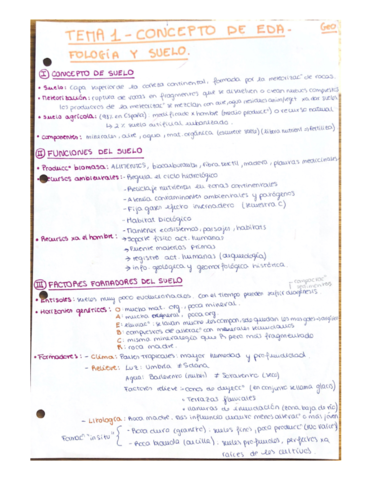 TEMA 1 - CONCEPTO DE EDA-
GEO
FOLOGÍA Y SUELO.
I CONCEPTO DE SUELO
• Suelo: capa superior de la corteza continental, formada por la meteorizac° de rocas.
• Meteorización: ruptura de rocas en fragmentos que se disuelven o crean nuevos compuestos
los productos de la meteorizac° se mezclan con
• Suelo agrícola: (98% en España) modificado x hombre (medio product°) o recurso natural
suelo artificial urbanizado.
• Componentes: minerales, aire, agua, mat. orgánica
II FUNCIONES DEL SUELO
• Product° biomasa: ALIMENTOS, biocarburante, fibra textil, madera, plantas medicinales
• Recursos ambientales: - Regula el ciclo hidrológico
- Reciclaje nutrientes en zonas continentales
- Atenúa contaminantes ambientales y patógenos
- Fija gases efecto invernadero (secuestra C)
- Hábitat biológico
- Mantiene ecosistemas, paisajes, hábitats
• Recursos xa el hombre: → Soporte físico act. humanas
→ Fuente materias primas
→ registro act. humanas (arqueología)
→ info. geológica y geomorfológica histórica
III FACTORES FORMADORES DEL SUELO
• Entisoles: suelos muy poco evolucionados. Con el tiempo pueden sufrir diagénesis
• Horizontes genéticos: O mucha mat. org, poca mineral.
A mucha mineral, poca org.
B compuestos de alterac° con materiales
C misma mineralogía que R pero más fragmentado
R roca madre.
• Formadores: - Clima: Países tropicales: mayor humedad y profundidad
- Relieve: Luz: Umbría ≠ Solana
Agua: Barlovento (lluvia) ≠ Sotavento (seco)
Factores relieve → Conos de deyecc° (en conjunto se llama glacis)
→ Terrazas fluviales
→ Llanuras de inundación (zona baja de río)
- Litología: Roca madre, + más joven
Formac° "in situ" - Roca dura (granito). Suelos finos, poco product°
- Roca blanda (arcilla). suelos profundos, perfectos xa
raíces de los cultivos.